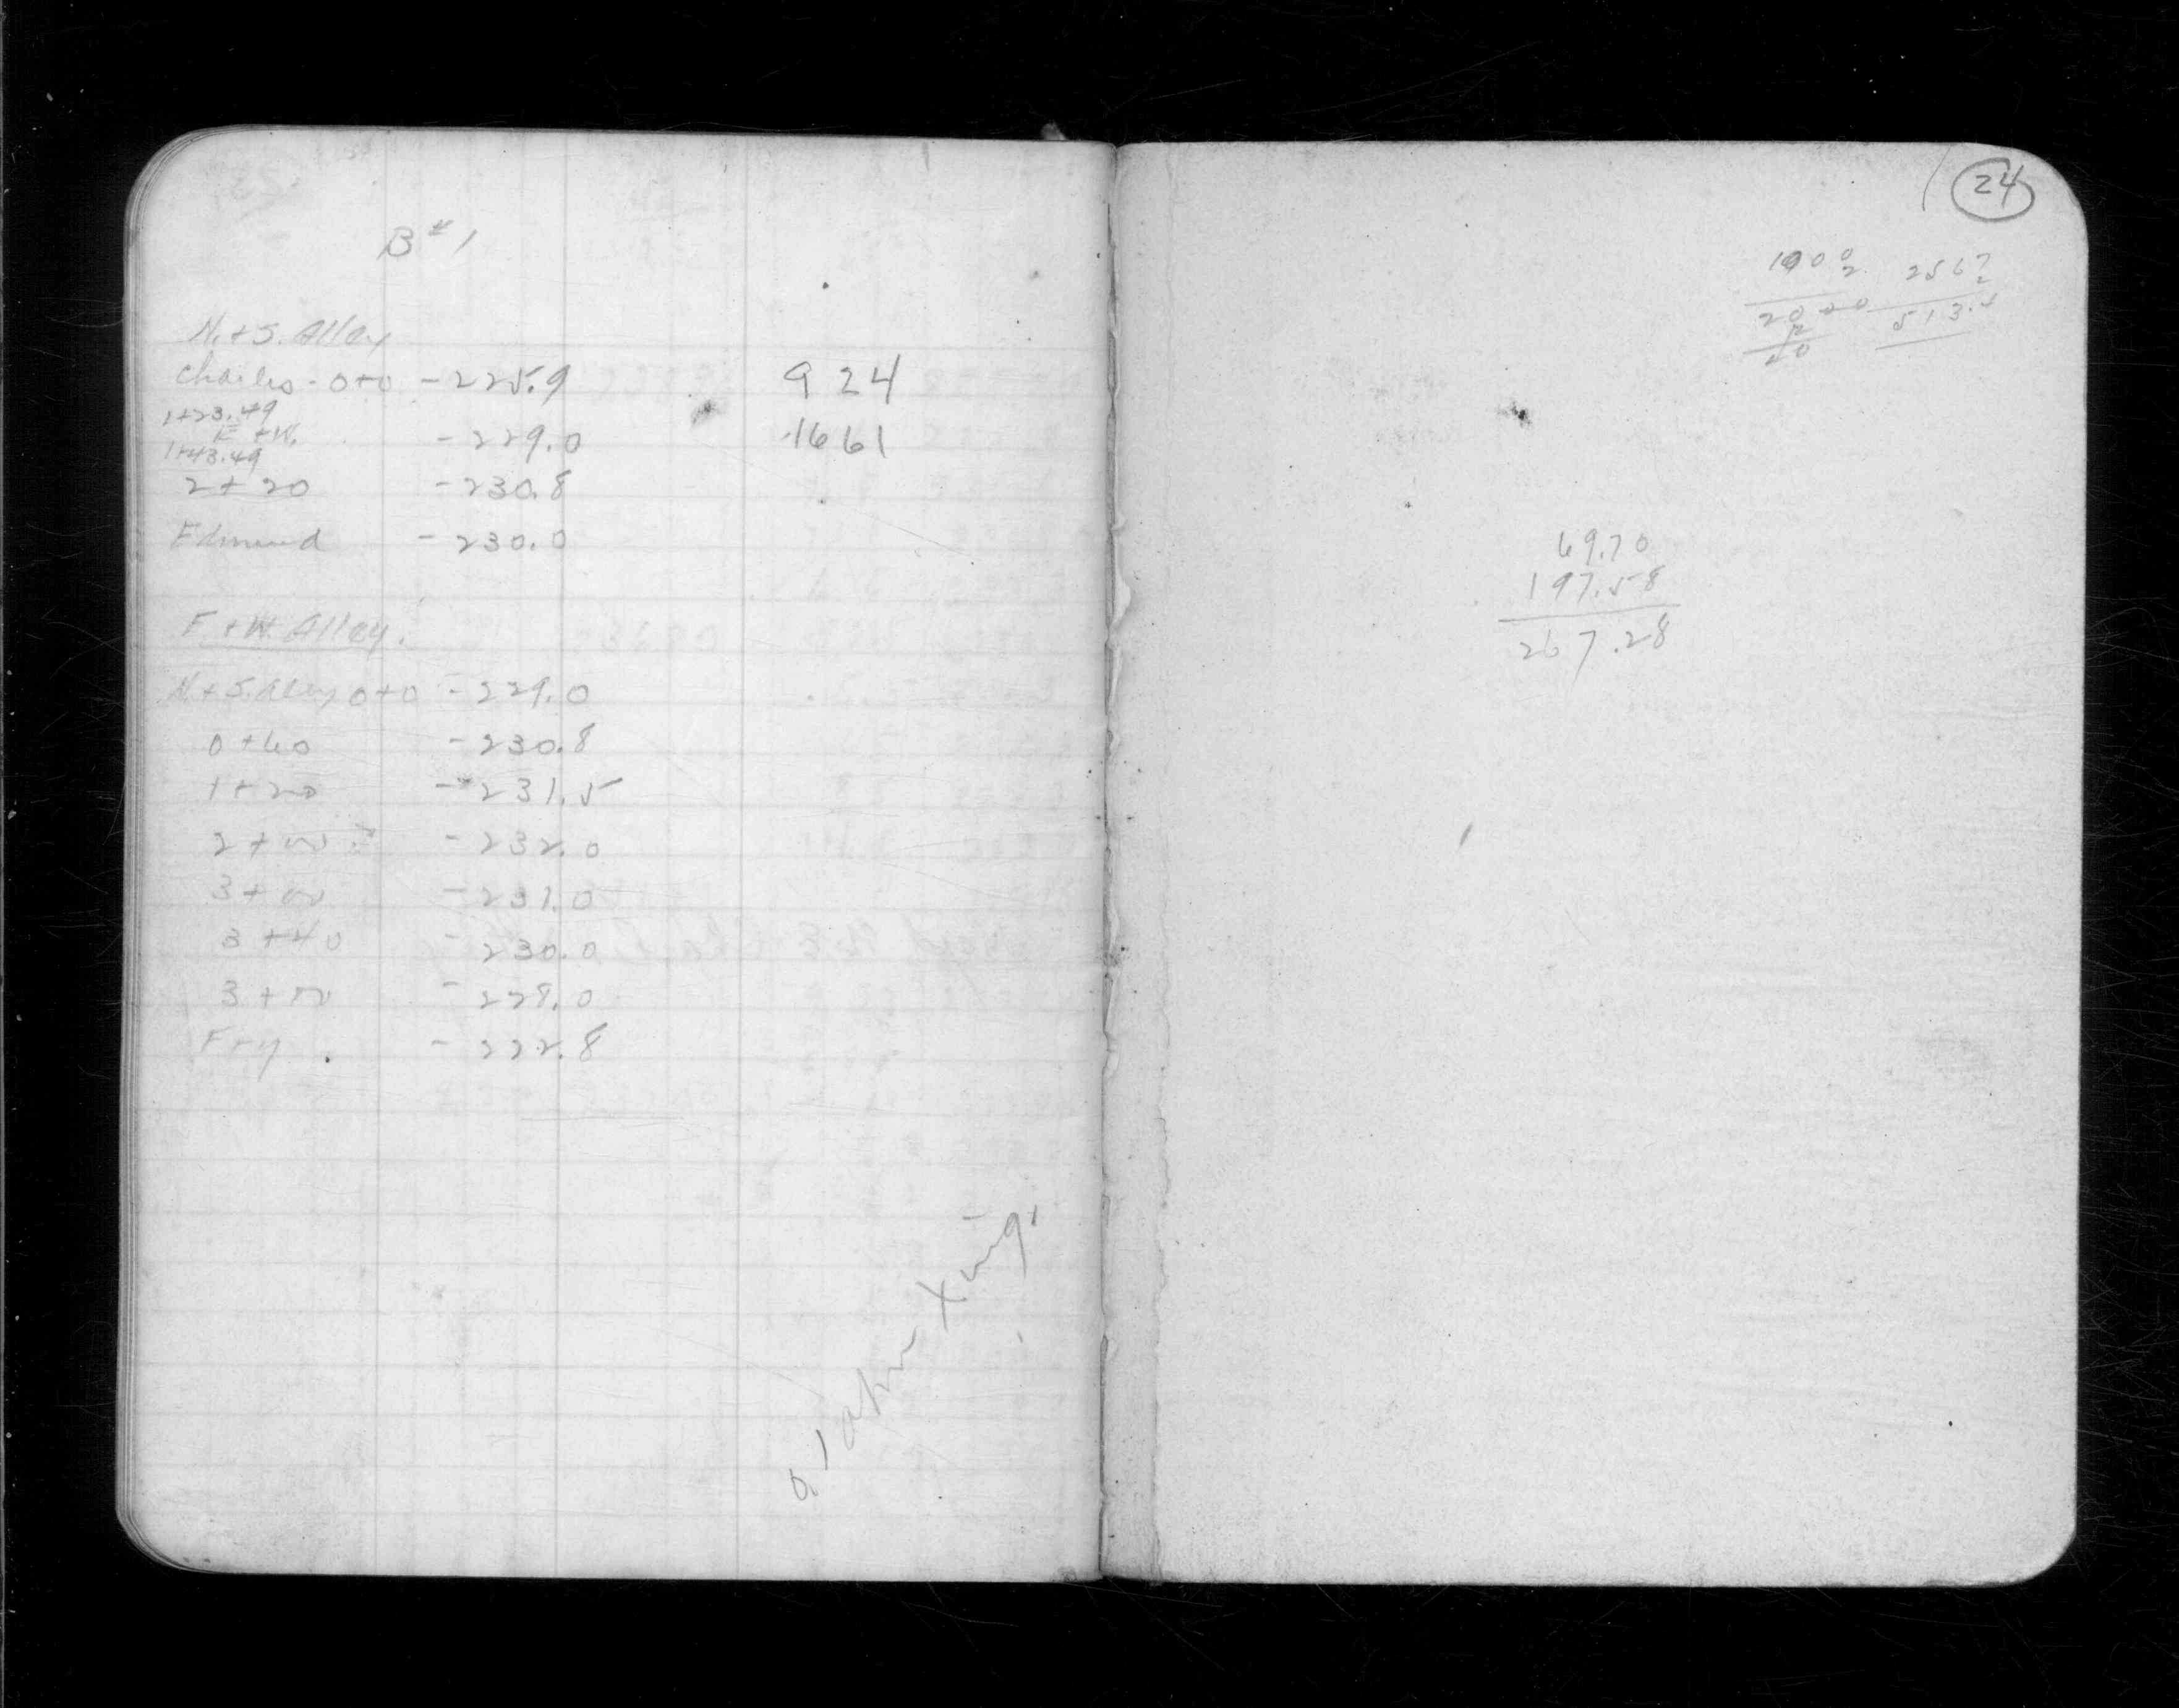 B#1
N. + S. Alley
Charles - 0+0 - 225.9 924
1+23.49
E + W. - 229.0 1661
1+43.49
2+20 - 230.8
Edmund - 230.0
E + W. Alley.
N. + S. Alley 0+0 - 229.0
0+60 - 230.8
1+20 - 231.5
2+00 - 232.0
3+00 - 231.0
3+40 - 230.0
3+ - 228.0
Fry. - 222.8
Xing.
24
1000 2567
2 2
2000 513.4
40
69.70
197.58
267.28